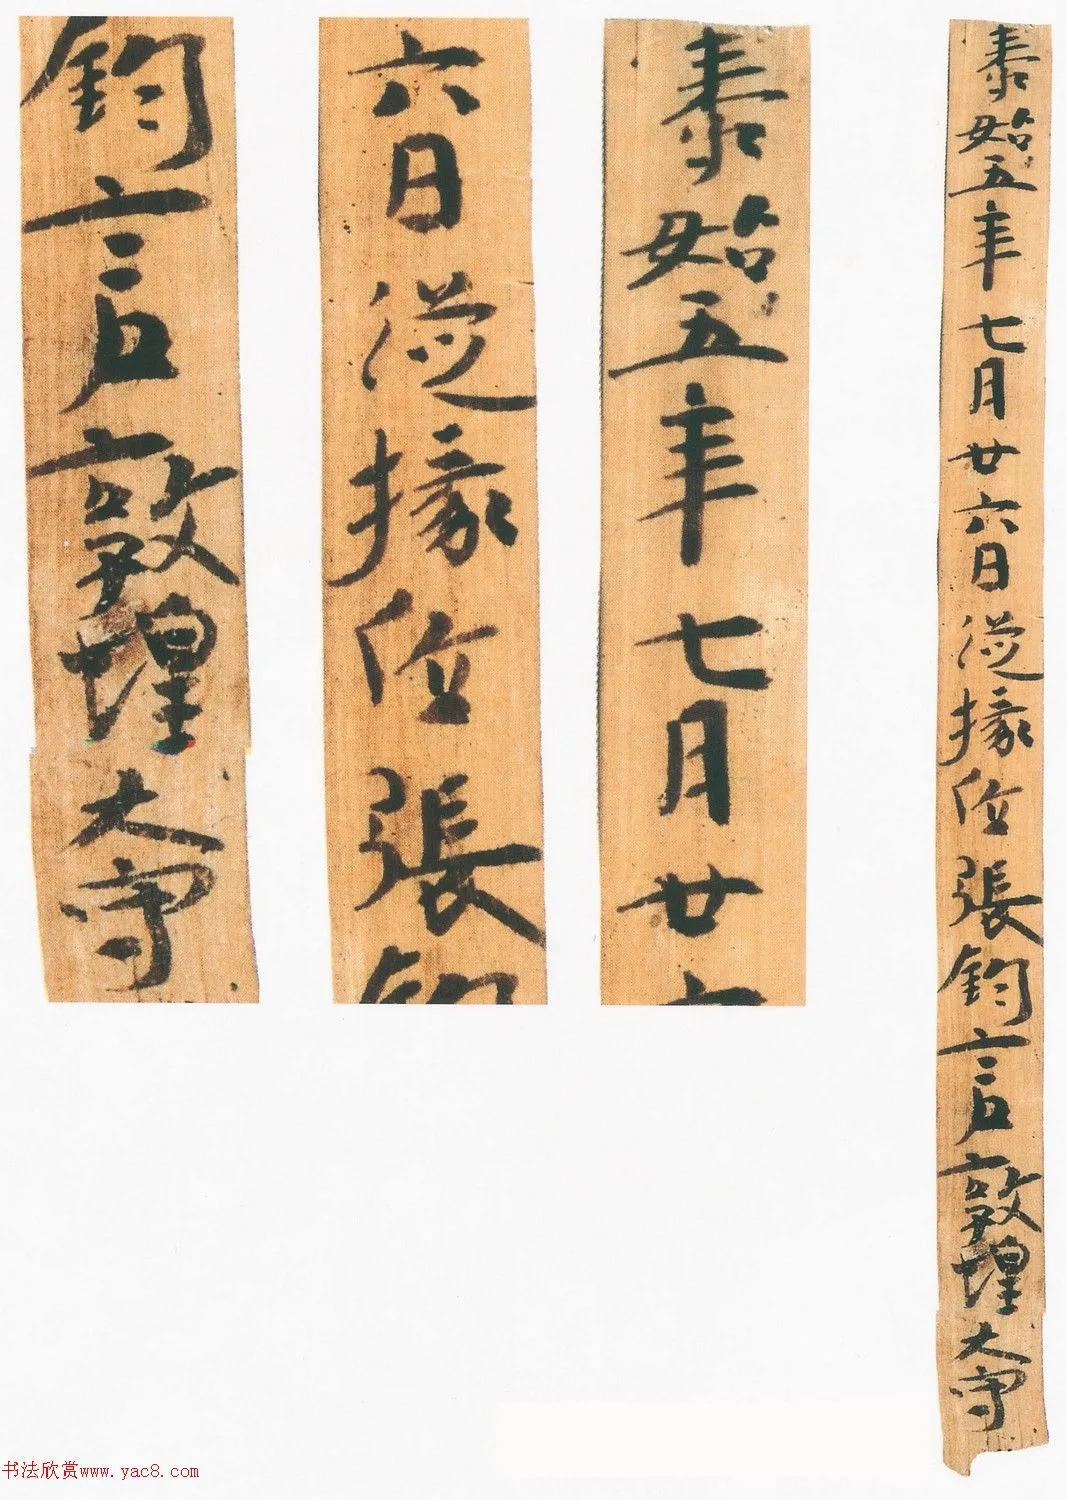 泰始五年七月廿六日從掾位張鈞言敦煌大守
泰始五年七月廿
六日從掾位張
鈞言敦煌大守
书法欣赏www.yac8.com